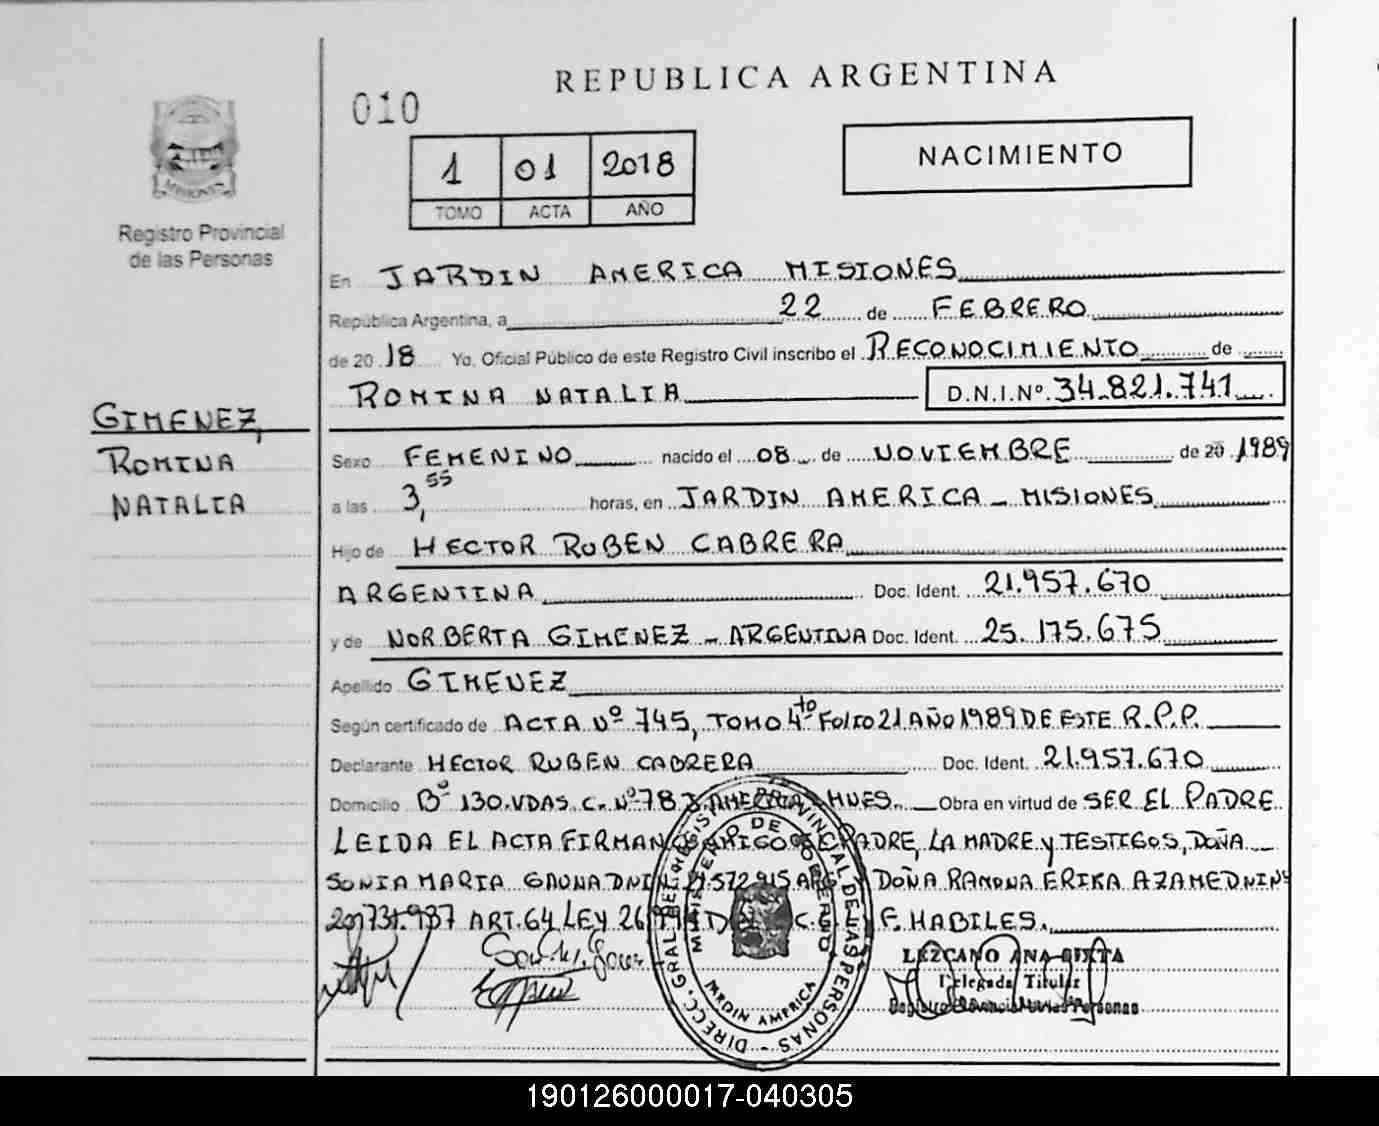 REPUBLICA ARGENTINA
010
1 01 2018
TOMO ACTA AÑO
NACIMIENTO
MISIONES
Registro Provincial
de las Personas
GIMENEZ,
ROMINA
NATALIA
En JARDIN AMERICA MISIONES
República Argentina, a 22 de FEBRERO
de 20 18 Yo, Oficial Público de este Registro Civil inscribo el RECONOCIMIENTO de
ROMINA NATALIA D.N.I.Nº 34.821.741
Sexo FEMENINO nacido el 08 de NOVIEMBRE de 20 1989
a las 3,55 horas, en JARDIN AMERICA - MISIONES
Hijo de HECTOR RUBEN CABRERA
ARGENTINA Doc. Ident. 21.957.670
y de NORBERTA GIMENEZ - ARGENTINA Doc. Ident. 25.175.675
Apellido GIMENEZ
Según certificado de ACTA Nº 745, TOMO 4to FOLIO 21 AÑO 1989 DE ESTE R.P.P.
Declarante HECTOR RUBEN CABRERA Doc. Ident. 21.957.670
Domicilio Bº 130.VDAS. C. Nº 78 J. AMERICA MNES. Obra en virtud de SER EL PADRE
LEIDA EL ACTA FIRMAN CONMIGO EL PADRE, LA MADRE Y TESTIGOS, DOÑA
SONIA MARIA GAUNA DNI Nº DOÑA RAMONA ERIKA AZAME DNI Nº
ART. 64 LEY F. HABILES.
DIRECC. GRAL DEL REGISTRO PROVINCIAL DE LAS PERSONAS -
MINISTERIO DE GOBIERNO
JARDIN AMERICA
LEZCANO ANA SIXTA
Delegada Titular
Registro Provincial de las Personas
190126000017-040305